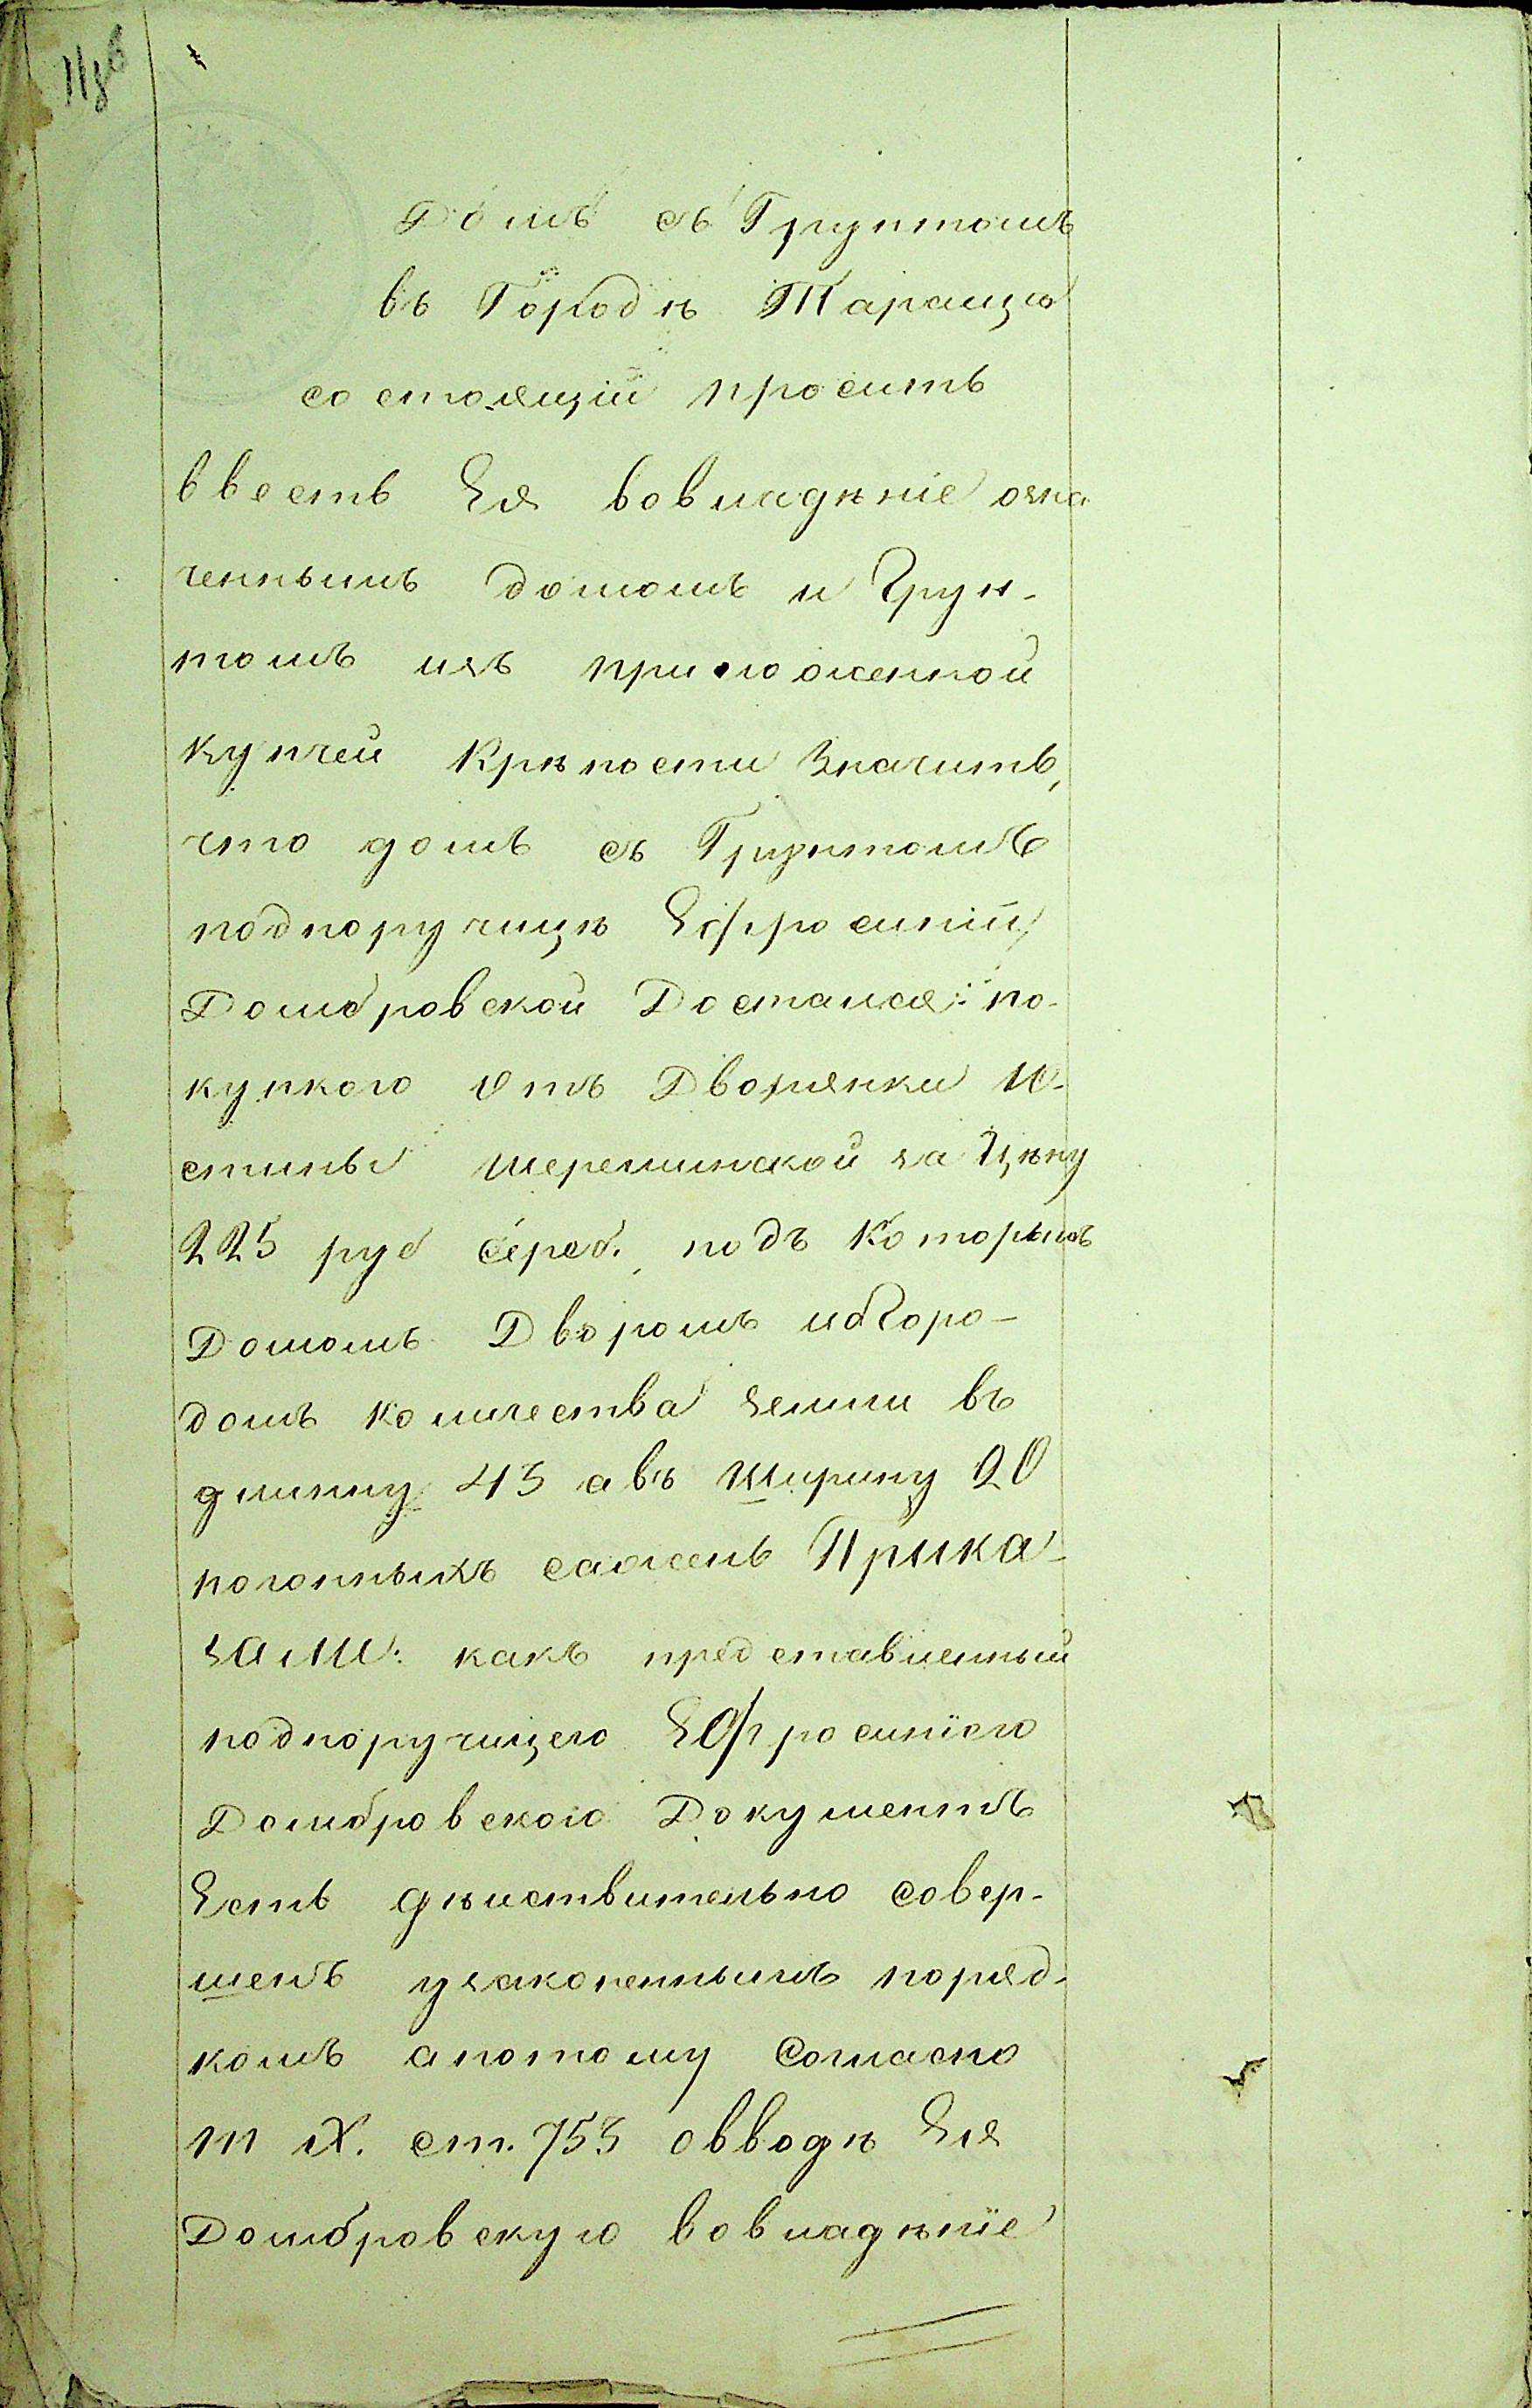 Домъ съ Грунтомъ
въ Городѣ Таращѣ
состоящій проситъ
ввесть Ея вовладѣніе озна
ченнымъ домомъ и Грун-
томъ изъ приложенной
Купчей Крѣпости Значитъ,
что домъ съ Грунтомъ
подпоручицѣ Ефросиніи
Домбровской Достался по-
купкою Отъ Дворянки Ю-
стины Шереминской за Цѣну
225 руб сереб. подъ Которымъ
Домомъ Дворомъ иогоро-
домъ количества земли въ
длинну 43 авъ ширину 20
погонныхъ сажень Прика-
зали: какъ представленный
подпоручицею Ефросиніею
Домбровскою Документъ
Есть дѣиствительно совер-
шенъ узаконеннымъ поряд-
комъ апотому Согласно
т X. ст. 753 овводѣ Ея
Домбровскую вовладѣніе